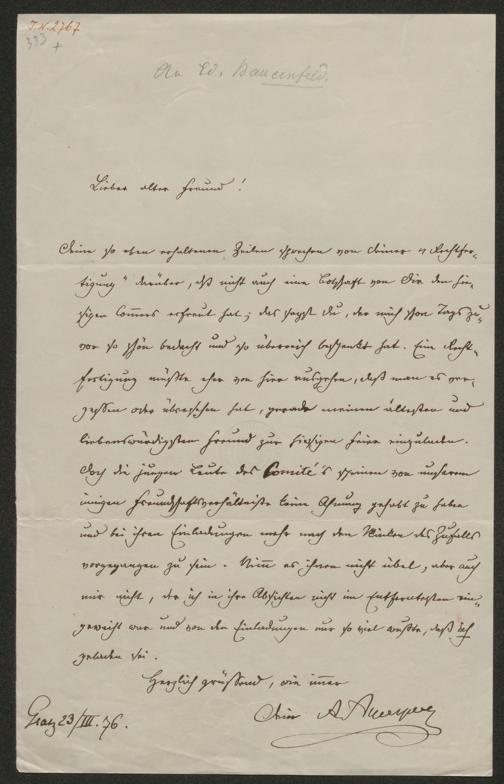 I.N. 2767
333
+
An Ed. Bauernfeld.
Lieber alter Freund!
Deine so eben erhaltenen Zeilen sprechen von Deiner „Rechtfer-
tigung“ darüber, daß nicht auch eine Botschaft von Dir den hie-
sigen Commers erfreut hat; das sagst Du, der mich schon Tags zu-
vor so schön bedacht und so überreich beschenkt hat. Eine Recht-
fertigung müßte eher von hier ausgehen, daß man es ver-
gessen oder übersehen hat, gerade meinen ältesten und
liebenswürdigsten Freund zur hiesigen Feier einzuladen.
Doch die jungen Leute des Comité's scheinen von unserem
innigen Freundschaftsverhältniße keine Ahnung gehabt zu haben
und bei ihren Einladungen mehr nach den Winken des Zufalls
vorgegangen zu sein. Nimm es ihnen nicht übel, aber auch
mir nicht, da ich in ihre Absichten nicht im Entferntesten ein-
geweiht war und von den Einladungen nur so viel wußte, daß ich
geladen sei.
Herzlich grüssend, wie immer
Dein A. Auersperg
Graz 23/III. 76.